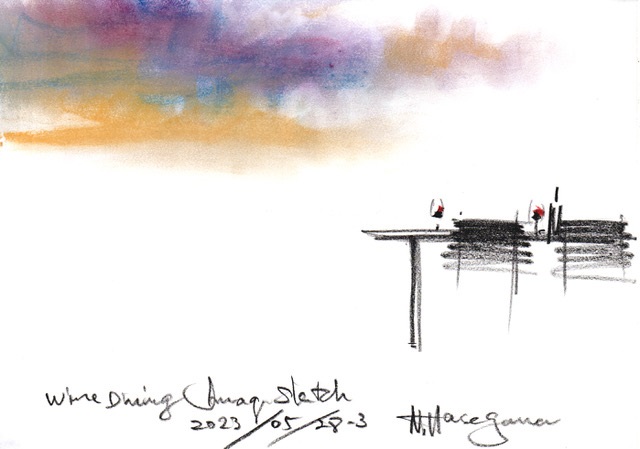 Wine Dining Image Sketch
2023/05/28-3
H.Hasegawa